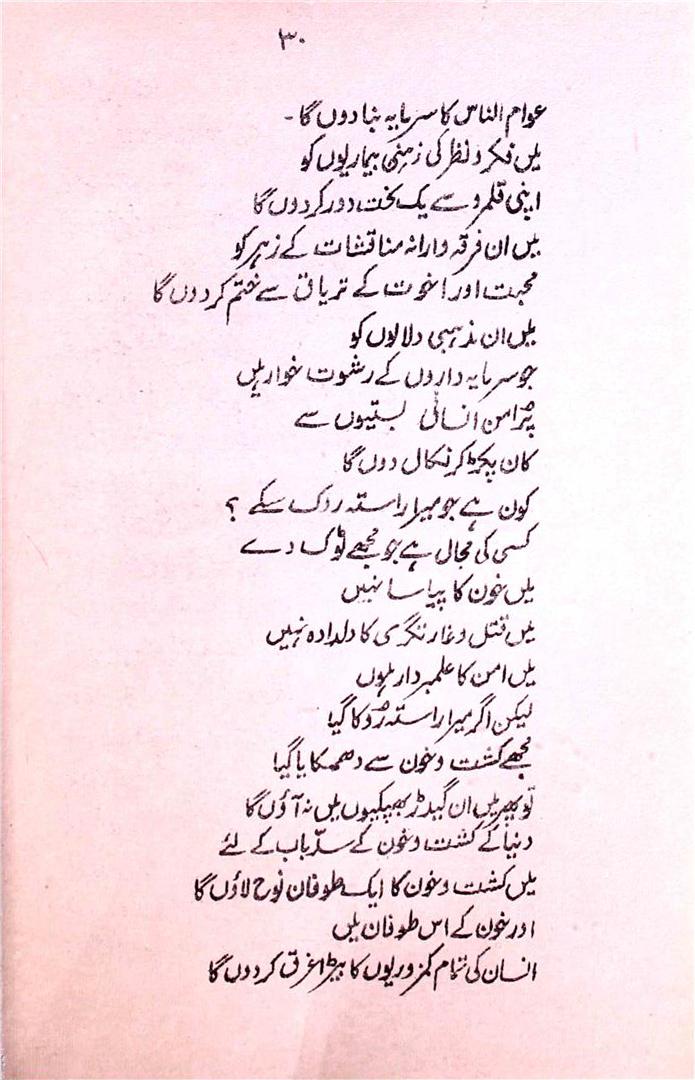 ۳۰
عوام الناس کا سرمایہ بنا دوں گا۔
میں فکر و نظر کی ذہنی بیماریوں کو
اپنی قلمرو سے یک لخت دور کر دوں گا
میں ان فرقہ وارانہ مناقشات کے زہر کو
محبت اور اخوت کے تریاق سے ختم کر دوں گا
میں ان مذہبی دلالوں کو
جو سرمایہ داروں کے رشوت خوار ہیں
پُر امن انسانی بستیوں سے
کان پکڑ کر نکال دوں گا
کون ہے جو میرا راستہ روک سکے ؟
کسی کی مجال ہے جو مجھے ٹوک دے
میں خون کا پیاسا نہیں
میں قتل و غارتگری کا دلدادہ نہیں
میں امن کا علمبردار ہوں
لیکن اگر میرا راستہ روکا گیا
مجھے کشت و خون سے دھمکایا گیا
تو پھر میں ان گیدڑ بھبکیوں میں نہ آؤں گا
دنیا کے کشت و خون کے سدِّ باب کے لئے
میں کشت و خون کا ایک طوفان نوح لاؤں گا
اور خون کے اس طوفان میں
انسان کی تمام کمزوریوں کا بیڑا غرق کر دوں گا